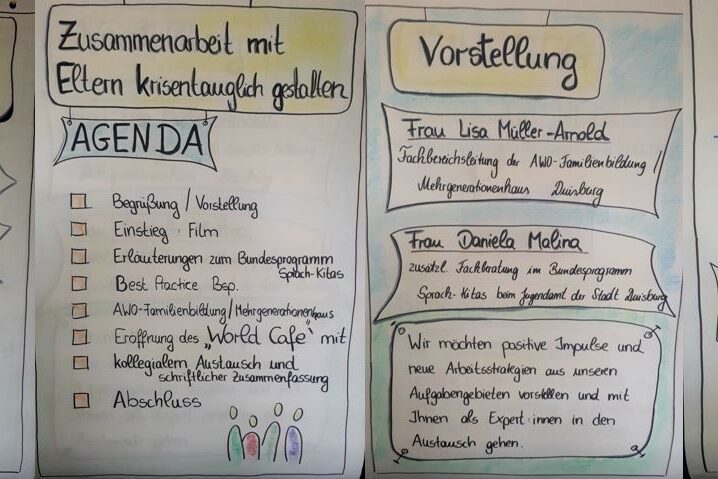 Zusammenarbeit mit
Eltern krisentauglich gestalten
AGENDA
Begrüßung / Vorstellung
Einstieg: Film
Erläuterungen zum Bundesprogramm
Sprach-Kitas
Best Practice Bsp.
AWO-Familienbildung/Mehrgenerationenhaus
Eröffnung des „World Cafe“ mit
kollegialem Austausch und
schriftlicher Zusammenfassung
Abschluss
Vorstellung
Frau Lisa Müller-Arnold
Fachbereichsleitung der AWO-Familienbildung /
Mehrgenerationenhaus Duisburg
Frau Daniela Malina
zusätzl. Fachberatung im Bundesprogramm
Sprach-Kitas beim Jugendamt der Stadt Duisburg
Wir möchten positive Impulse und
neue Arbeitsstrategien aus unseren
Aufgabengebieten vorstellen und mit
Ihnen als Expert:innen in den
Austausch gehen.